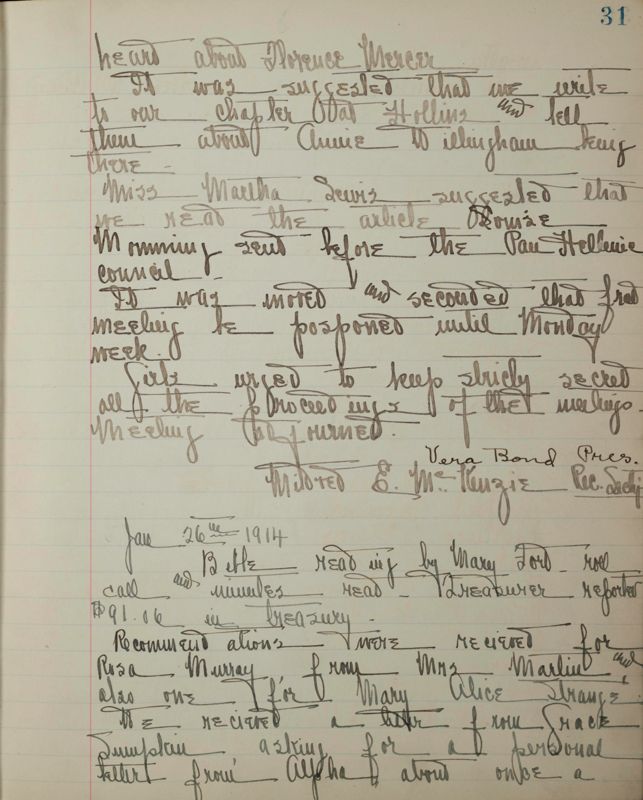 31
heard about Florence Mercer
It was suggested that we write
to our chapter at Hollins and tell
them about Annie Dillingham being
there.
Miss Martha Lewis suggested that
we read the article
Momming send before the Pan Hellenic
council.
It was moved and seconded that frat
meeting be posponed until Monday
week.
Girls urged to keep stricly secret
all the proceedings of the meetings.
Meeting adjourned.
Vera Bond Pres.
Mildred E. McKenzie Rec. Sec'ty
Jan 26th 1914
Bible reading by Mary Ford - roll
call and minutes read - Treasurer reported
$91.06 in treasury.
Recommendations were recieved for
Rosa Murray from Mrs Martin and
also one for Mary Alice Strange.
We recieved a letter from Grace
Lumpkin asking for a personal
letter from Alpha about once a